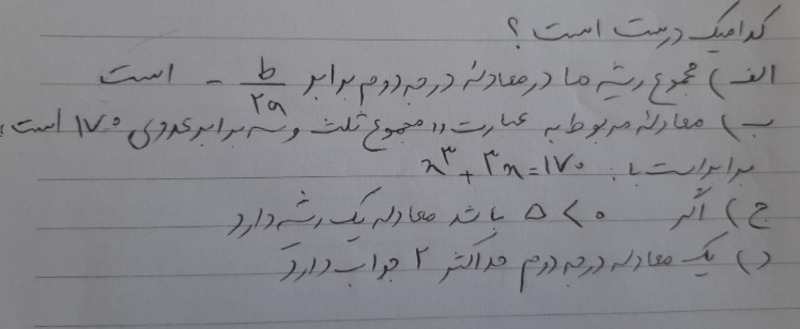 کدامیک درست است ؟
الف) مجموع ریشه ها در معادله درجه دوم برابر -b/2a است
ب) معادله مربوط به عبارت «مجموع ثلث و سه برابر عددی ۱۷۰ است»
برابر است با: x³ + ۳x = ۱۷۰
ج) اگر Δ < ۰ باشد معادله یک ریشه دارد
د) یک معادله درجه دوم حداکثر ۲ جواب دارد